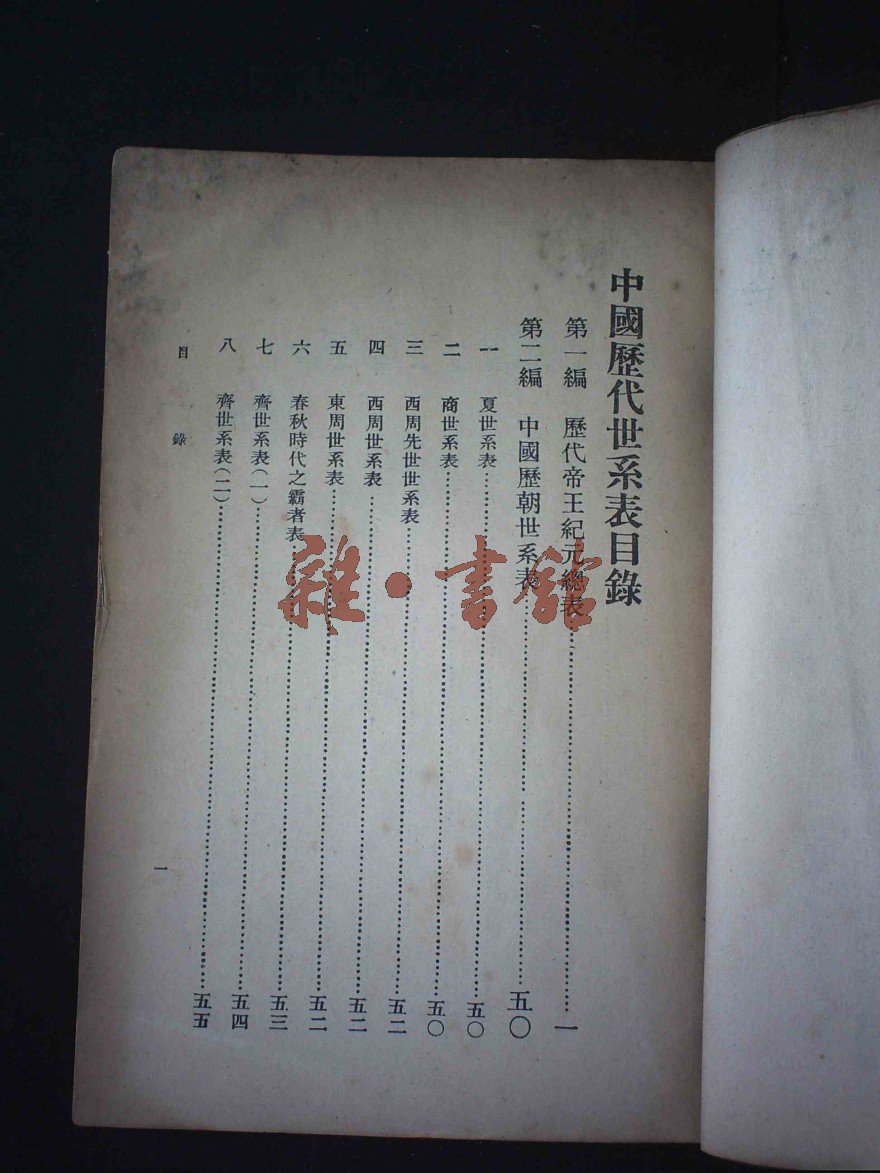 中國歷代世系表目錄
第一編 歷代帝王紀元總表……一
第二編 中國歷朝世系表……五〇
一 夏世系表……五〇
二 商世系表……五〇
三 西周先世世系表……五二
四 西周世系表……五二
五 東周世系表……五二
六 春秋時代之霸者表……五三
七 齊世系表(一)……五四
八 齊世系表(二)……五五
目錄
一
雜·書館